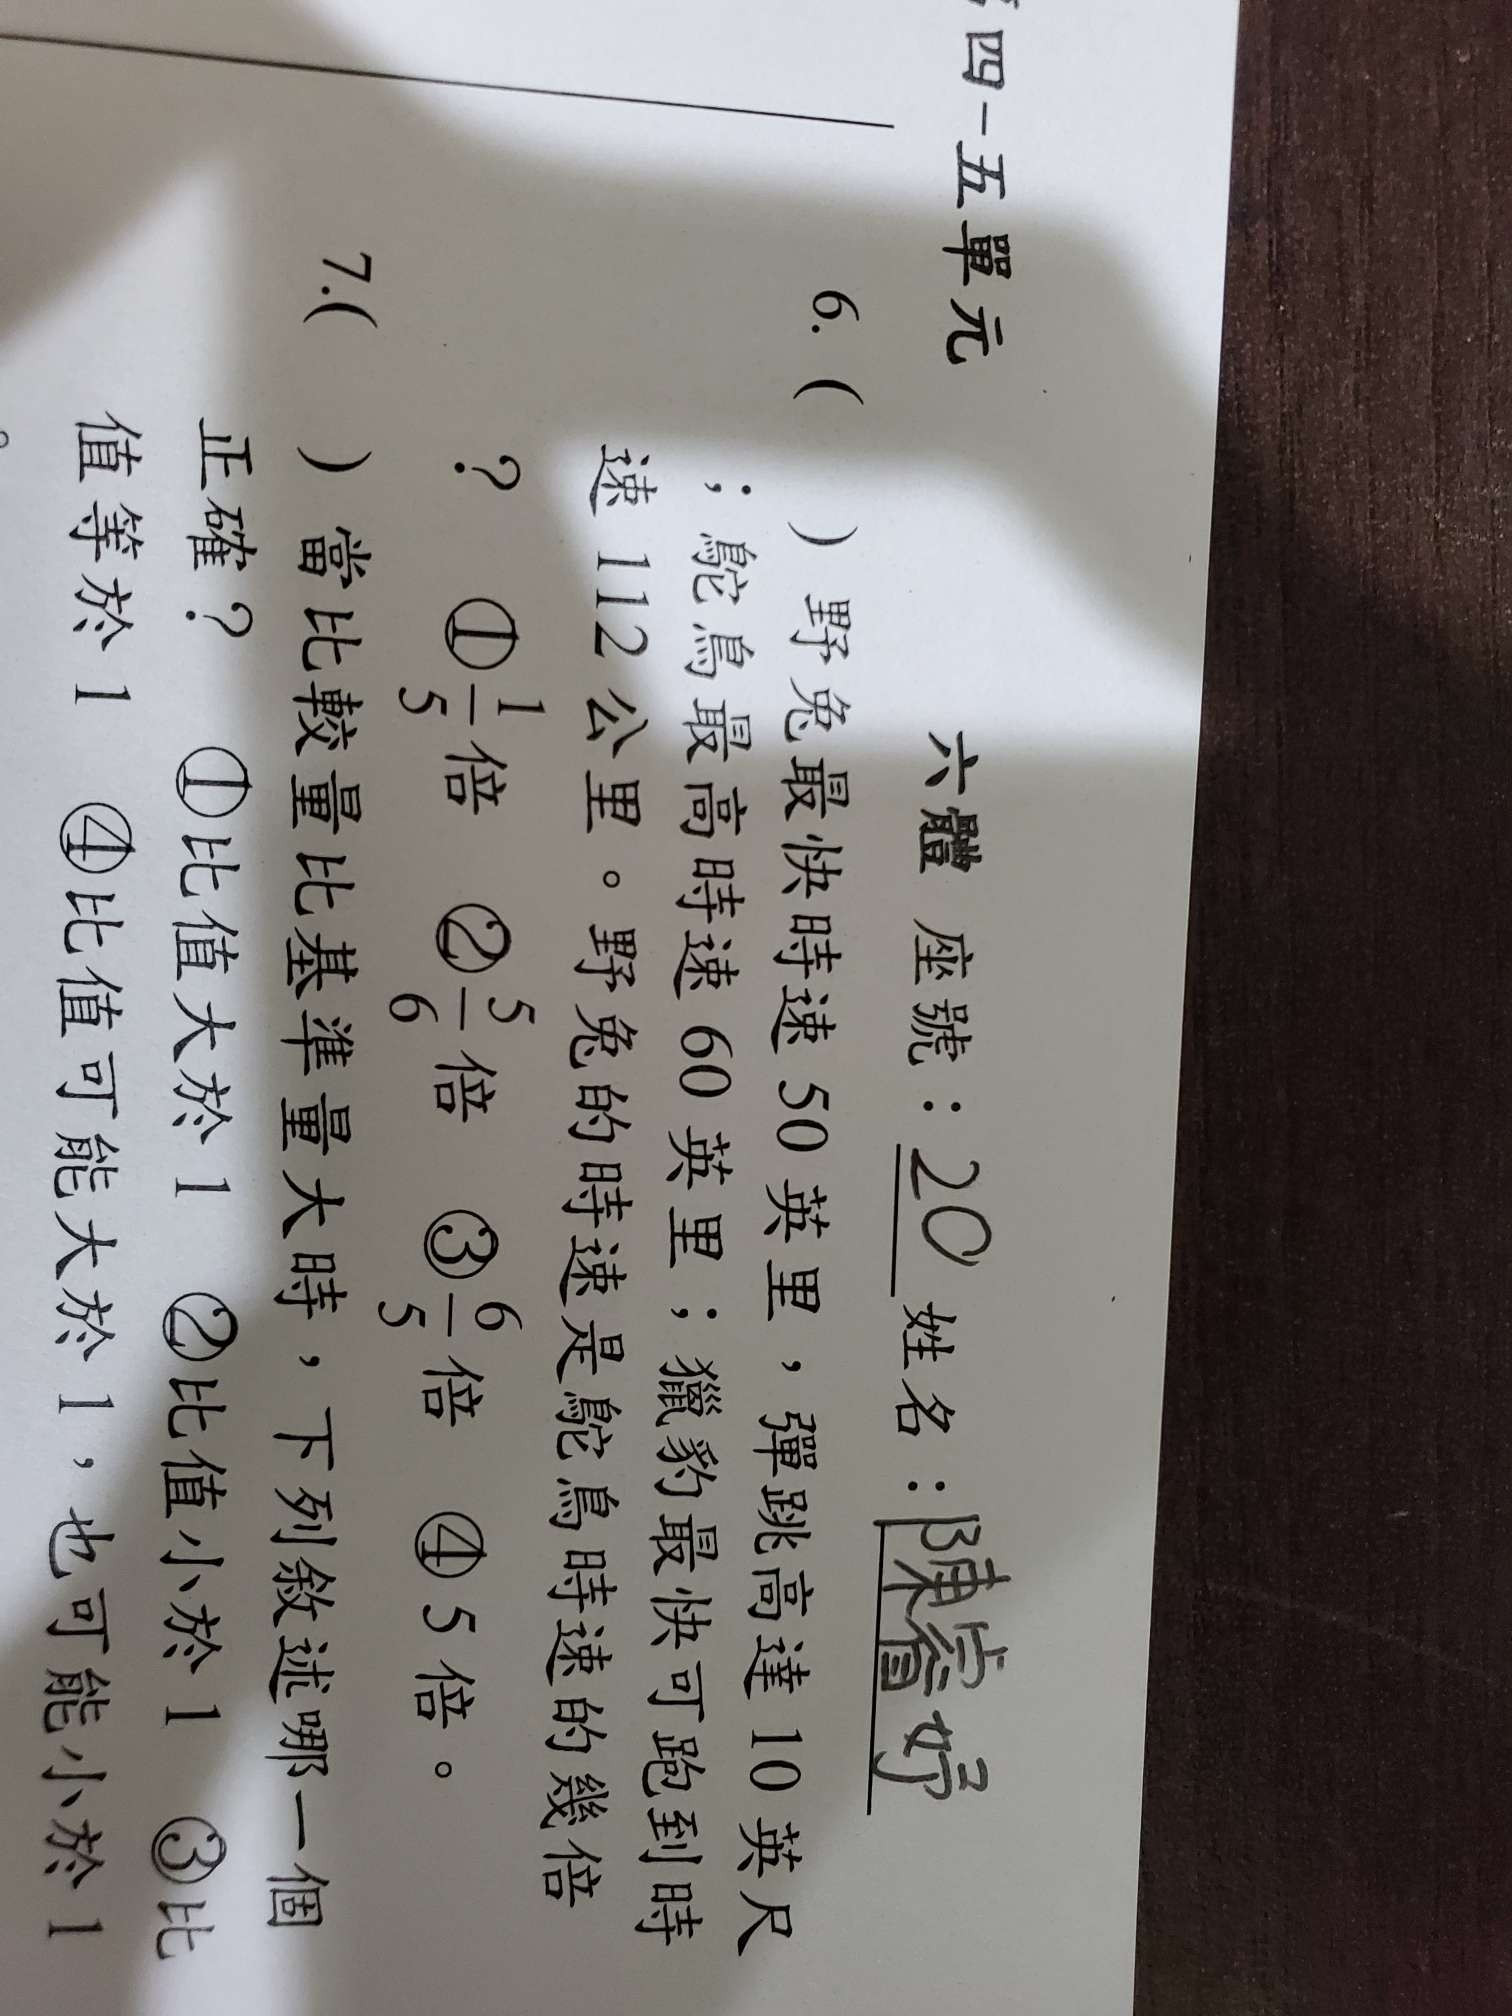 四－五單元
六體 座號：20 姓名：陳睿妤
6. ( ) 野兔最快時速 50 英里，彈跳高達 10 英尺
；鴕鳥最高時速 60 英里；獵豹最快可跑到時
速 112 公里。野兔的時速是鴕鳥時速的幾倍
？ ①1/5倍 ②5/6倍 ③6/5倍 ④5倍。
7.( ) 當比較量比基準量大時，下列敘述哪一個
正確？ ①比值大於 1 ②比值小於 1 ③比
值等於 1 ④比值可能大於 1，也可能小於 1
。